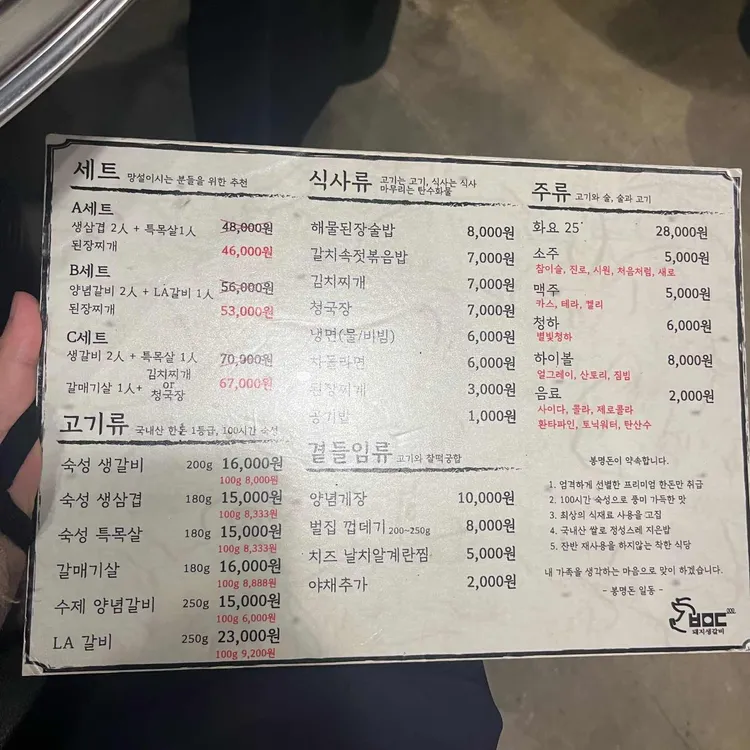 세트 망설이시는 분들을 위한 추천
A세트
생삼겹 2인 + 특목살1인 48,000원
된장찌개 46,000원
B세트
양념갈비 2인 + LA갈비 1인 56,000원
된장찌개 53,000원
C세트
생갈비 2인 + 특목살 1인 70,000원
갈매기살 1인+ 김치찌개 or 청국장 67,000원
고기류 국내산 한돈 1등급, 100시간 숙성
숙성 생갈비 200g 16,000원
100g 8,000원
숙성 생삼겹 180g 15,000원
100g 8,333원
숙성 특목살 180g 15,000원
100g 8,333원
갈매기살 180g 16,000원
100g 8,888원
수제 양념갈비 250g 15,000원
100g 6,000원
LA 갈비 250g 23,000원
100g 9,200원
식사류 고기는 고기, 식사는 식사
마무리는 탄수화물
해물된장술밥 8,000원
갈치속젓볶음밥 7,000원
김치찌개 7,000원
청국장 7,000원
냉면(물/비빔) 6,000원
차돌라면 6,000원
된장찌개 3,000원
공기밥 1,000원
곁들임류 고기와 찰떡궁합
양념게장 10,000원
벌집 껍데기 200~250g 8,000원
치즈 날치알계란찜 5,000원
야채추가 2,000원
주류 고기와 술, 술과 고기
화요 25˚ 28,000원
소주 5,000원
참이슬, 진로, 시원, 처음처럼, 새로
맥주 5,000원
카스, 테라, 켈리
청하 6,000원
별빛청하
하이볼 8,000원
얼그레이, 산토리, 짐빔
음료 2,000원
사이다, 콜라, 제로콜라
환타파인, 토닉워터, 탄산수
봉명돈이 약속합니다.
1. 엄격하게 선별한 프리미엄 한돈만 취급
2. 100시간 숙성으로 풍미 가득한 맛
3. 최상의 식재료 사용을 고집
4. 국내산 쌀로 정성스레 지은밥
5. 잔반 재사용을 하지않는 착한 식당
내 가족을 생각하는 마음으로 맞이 하겠습니다.
- 봉명돈 일동 -
돼지생갈비